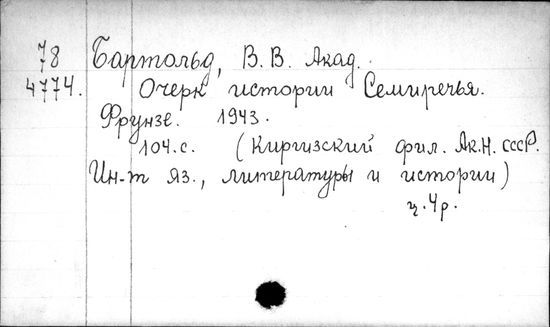 78 Бартольд, В. В. Акад.
4774. Очерк истории Семиречья.
Фрунзе. 1943.
104.с. (Киргизский фил. Ак.Н. СССР.
Ин-т яз., литературы и истории)
ц.4р.